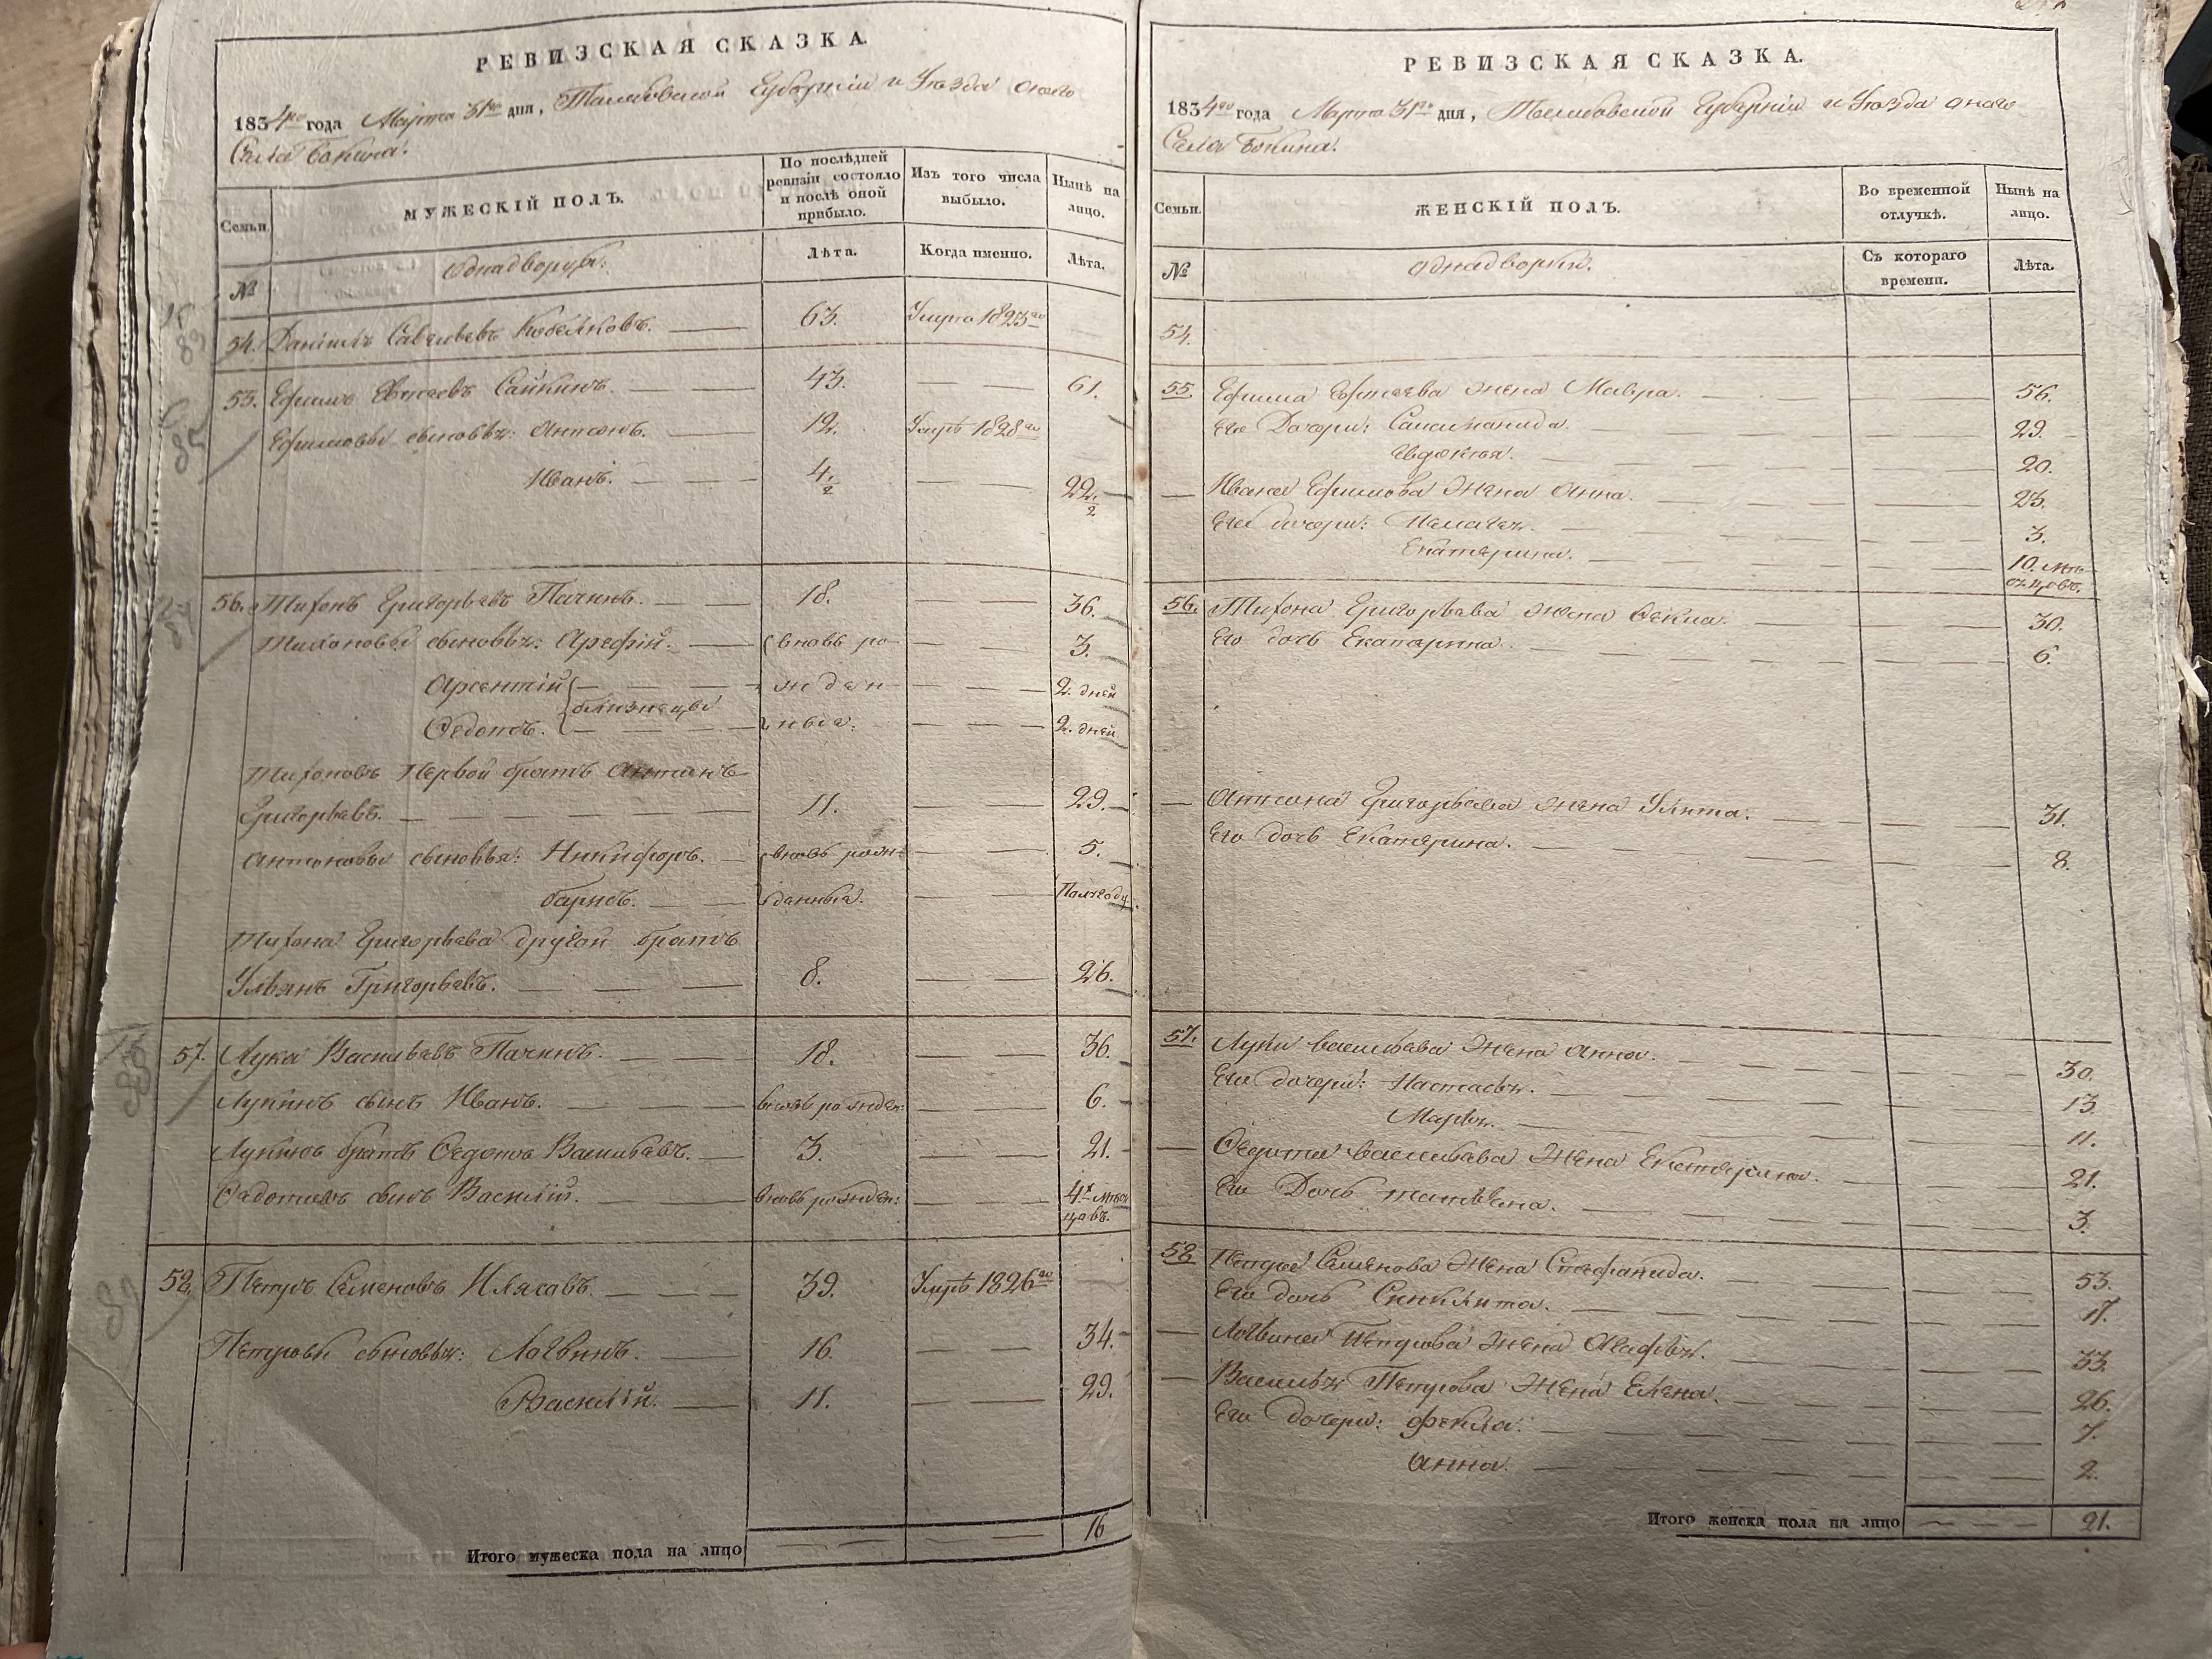 РЕВИЗСКАЯ СКАЗКА.
1834го года Марта 31го дня, Тамбовской Губернии и Уѣзда онаго
Села Бокина.
Семьи.
МУЖЕСКІЙ ПОЛЪ.
По послѣдней ревизіи состояло и послѣ оной прибыло.
Изъ того числа выбыло.
Нынѣ на лицо.
№
Однадворцы.
Лѣта.
Когда именно.
Лѣта.
54. Данилъ Савельевъ Кобелковъ. 63. 1823го
55. Ефимъ Евтеевъ Сайкинъ. 43. 61.
Ефимовы сыновья: Антонъ. 12. Умре 1828го
Иванъ. 4 1/2 22 1/2
56. Тихонъ Григорьевъ Пачинъ. 18. 36.
Тихоновы сыновья: Арефій. вновь ро- 3.
Арсентій близнецы жден- 2. дней
Ѳедотъ. ныя. 2. дней
Тихоновъ Первой братъ Антонъ
Григорьевъ. 11. 29.
Антоновы сыновья: Никифоръ. вновь рож- 5.
Барисъ. данныя. Полгоду
Тихона Григорьева другой братъ
Ульянъ Григорьевъ. 8. 26.
57. Лука Васильевъ Пачинъ. 18. 36.
Лукинъ сынъ Иванъ. вновь рожден: 6.
Лукинъ братъ Ѳедотъ Васильевъ. 3. 21.
Ѳедотовъ сынъ Василій. вновь рожден: 4х мѣся
цовъ.
58. Петръ Семеновъ Илясовъ. 39. Умре 1826го
Петровы сыновья: Логвинъ. 16. 34.
Василій. 11. 29.
Итого мужеска пола на лицо 16
РЕВИЗСКАЯ СКАЗКА.
1834го года Марта 31го дня, Тамбовской Губерніи и Уѣзда онаго
Села Бокина.
Семьи.
ЖЕНСКІЙ ПОЛЪ.
Во временной отлучкѣ.
Нынѣ на лицо.
№
Однадворки.
Съ котораго времени.
Лѣта.
54.
55. Ефима Евтеева жена Мавра. 56.
Его Дочери: 29.
Евдокея. 20.
Ивана Ефимова жена Анна. 23.
Его дочери: Пелагея. 3.
Екатерина. 10. мѣ-
сяцовъ.
56. Тихона Григорьева жена Ѳекла. 30.
Его дочь Екатерина. 6.
Антона Григорьева жена Улита. 31.
Его дочь Екатерина. 8.
57. Луки Васильева Жена Анна. 30.
Его дочери: Настасья. 13.
Марья. 11.
Ѳедота Васильева Жена Екатерина. 21.
Его Дочь Татьяна. 3.
58. Петра Семенова Жена Стефанида. 53.
Его дочь Синклита. 17.
Логвина Петрова Жена Агафья. 33.
Василья Петрова Жена Елена. 26.
Его дочери: Фекла. 7.
Анна. 2.
Итого женска пола на лицо 21.